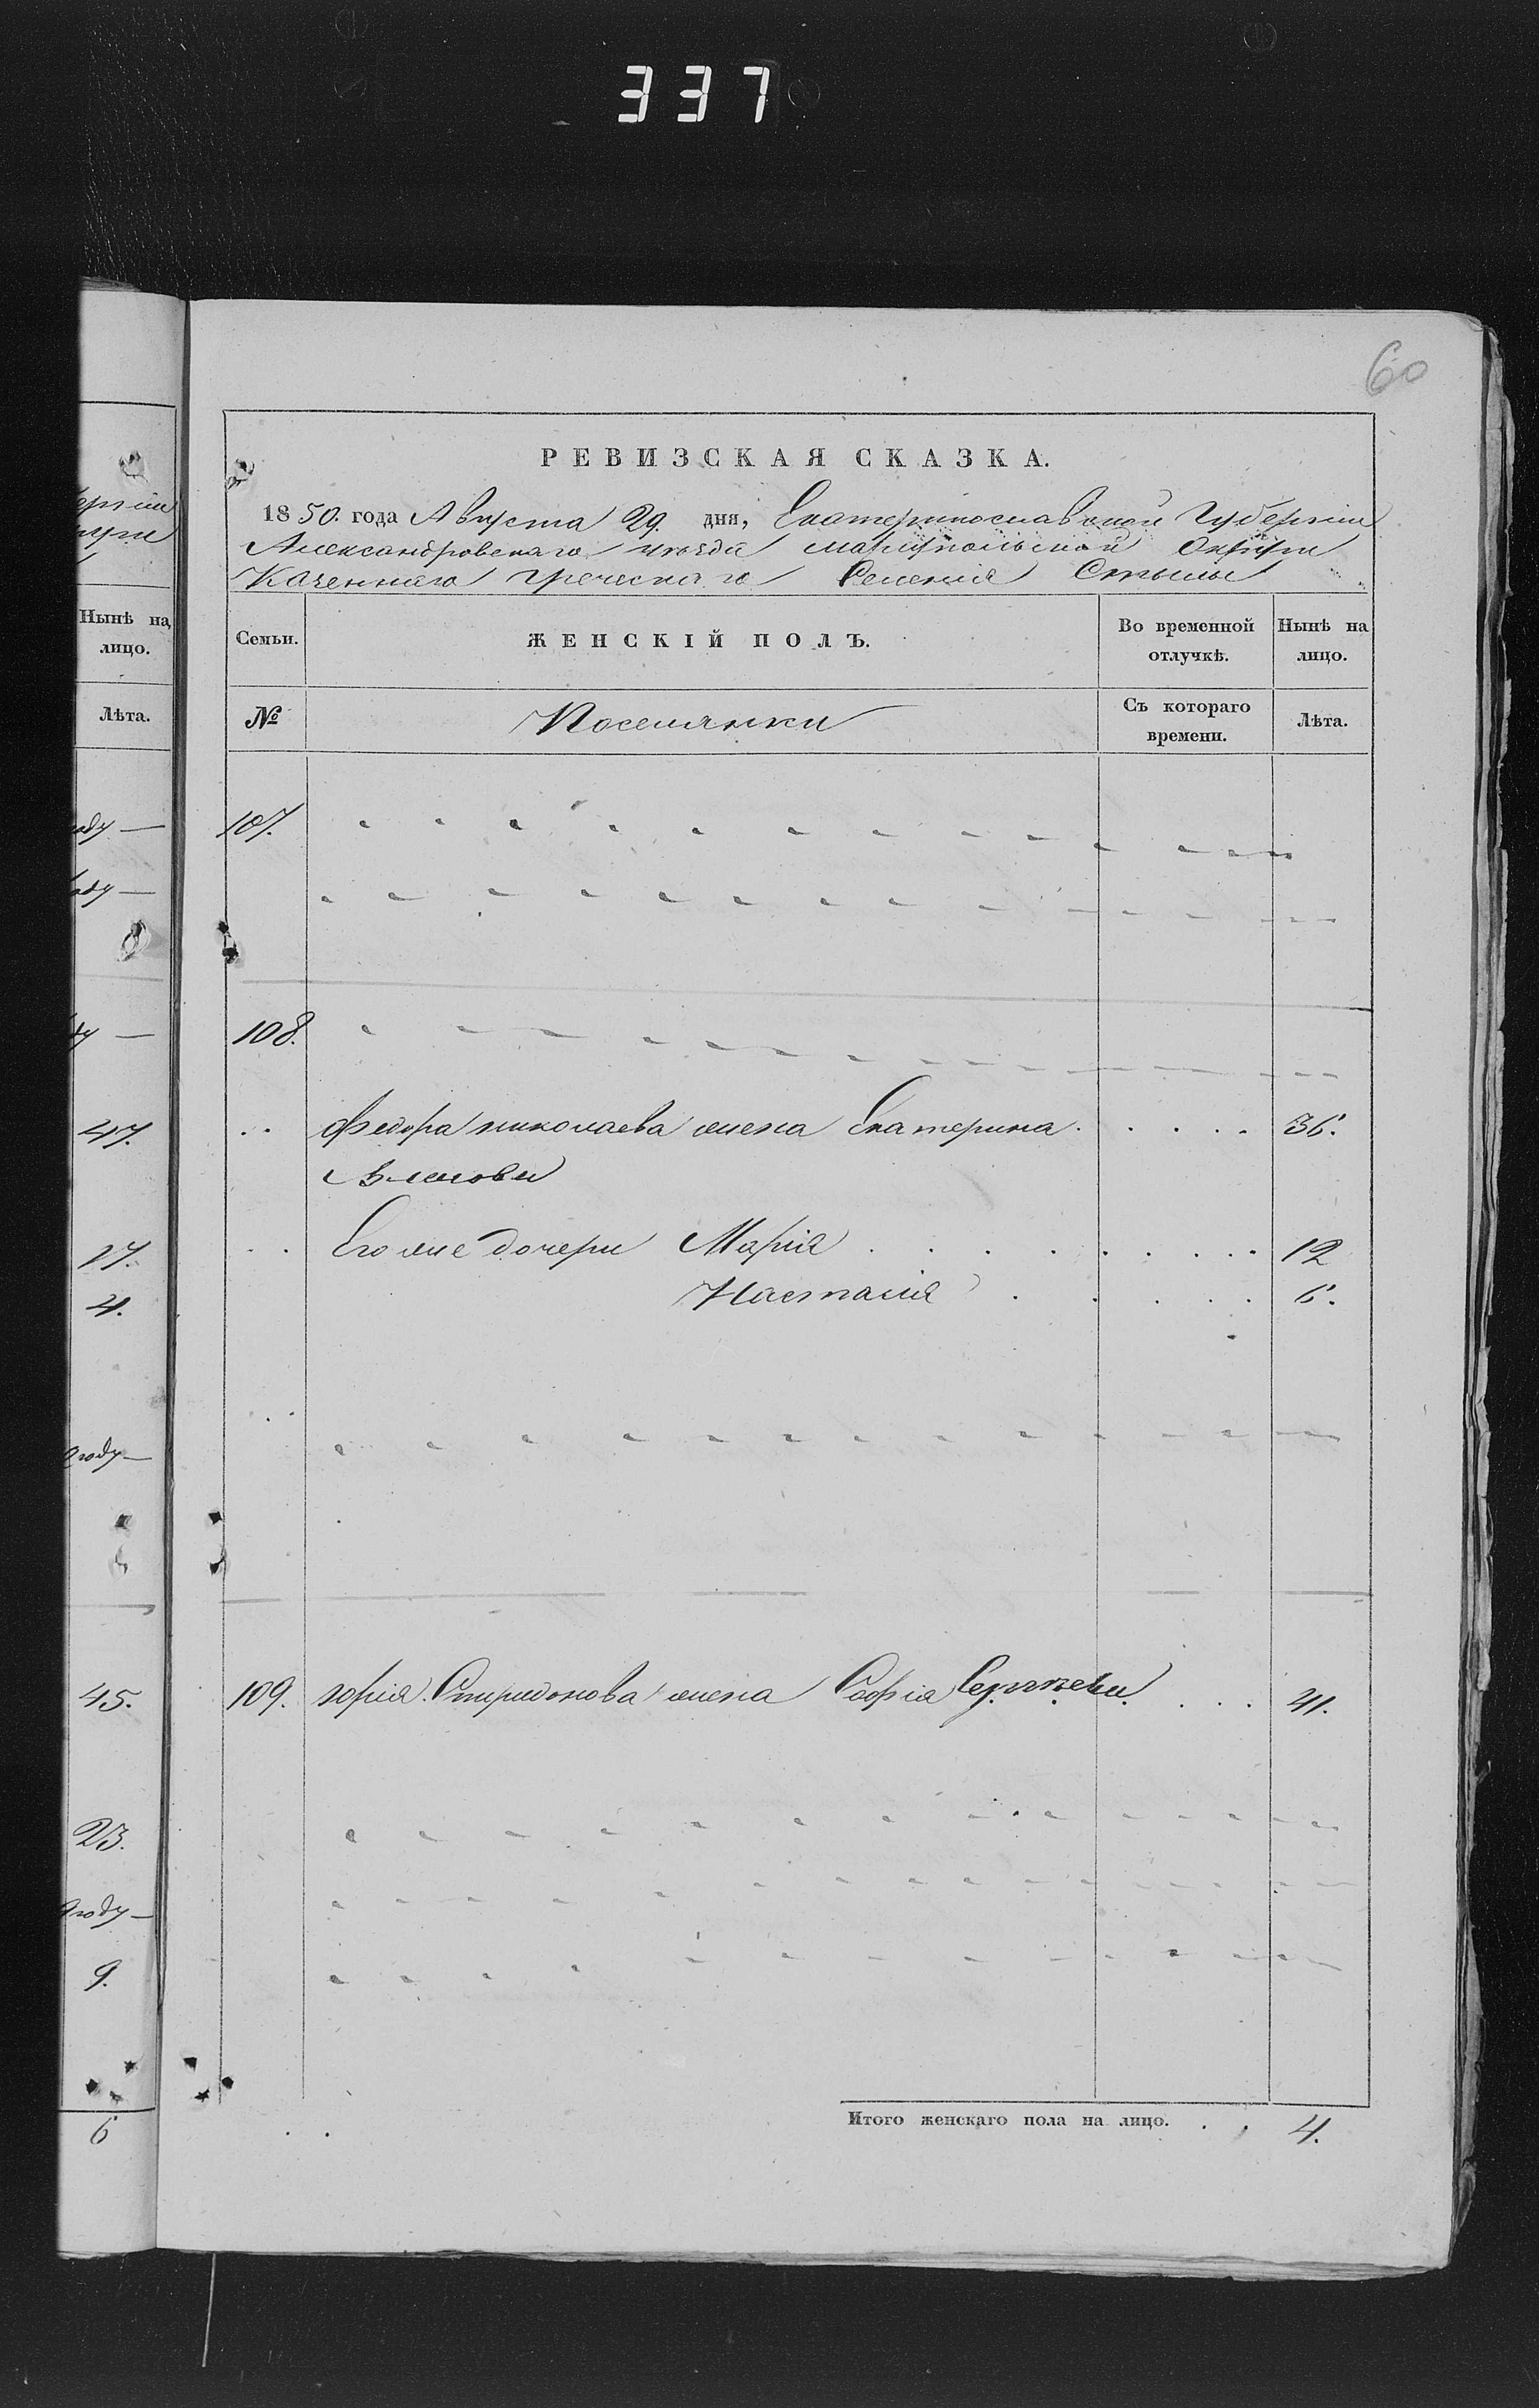 337
60
РЕВИЗСКАЯ СКАЗКА.
1850. года Августа 29. дня, Екатеринославской Губернии
Александровскаго уѣзда Мариупольской Округи
Казеннаго Греческаго Селения Стылы
Нынѣ на
лицо.
Лѣта.
Семьи.
ЖЕНСКІЙ ПОЛЪ.
Во временной
отлучкѣ.
Нынѣ на
лицо.
№
Поселянки
Съ котораго
времени.
Лѣта.
107.
108.
47.
Федора Николаева жена Екатерина 36.
17.
Его же дочери Марія 12
4.
Настасія 6.
году
45.
109. Юрія Спиридонова жена Софія 41.
23.
году
9.
6
Итого женскаго пола на лицо. 4.